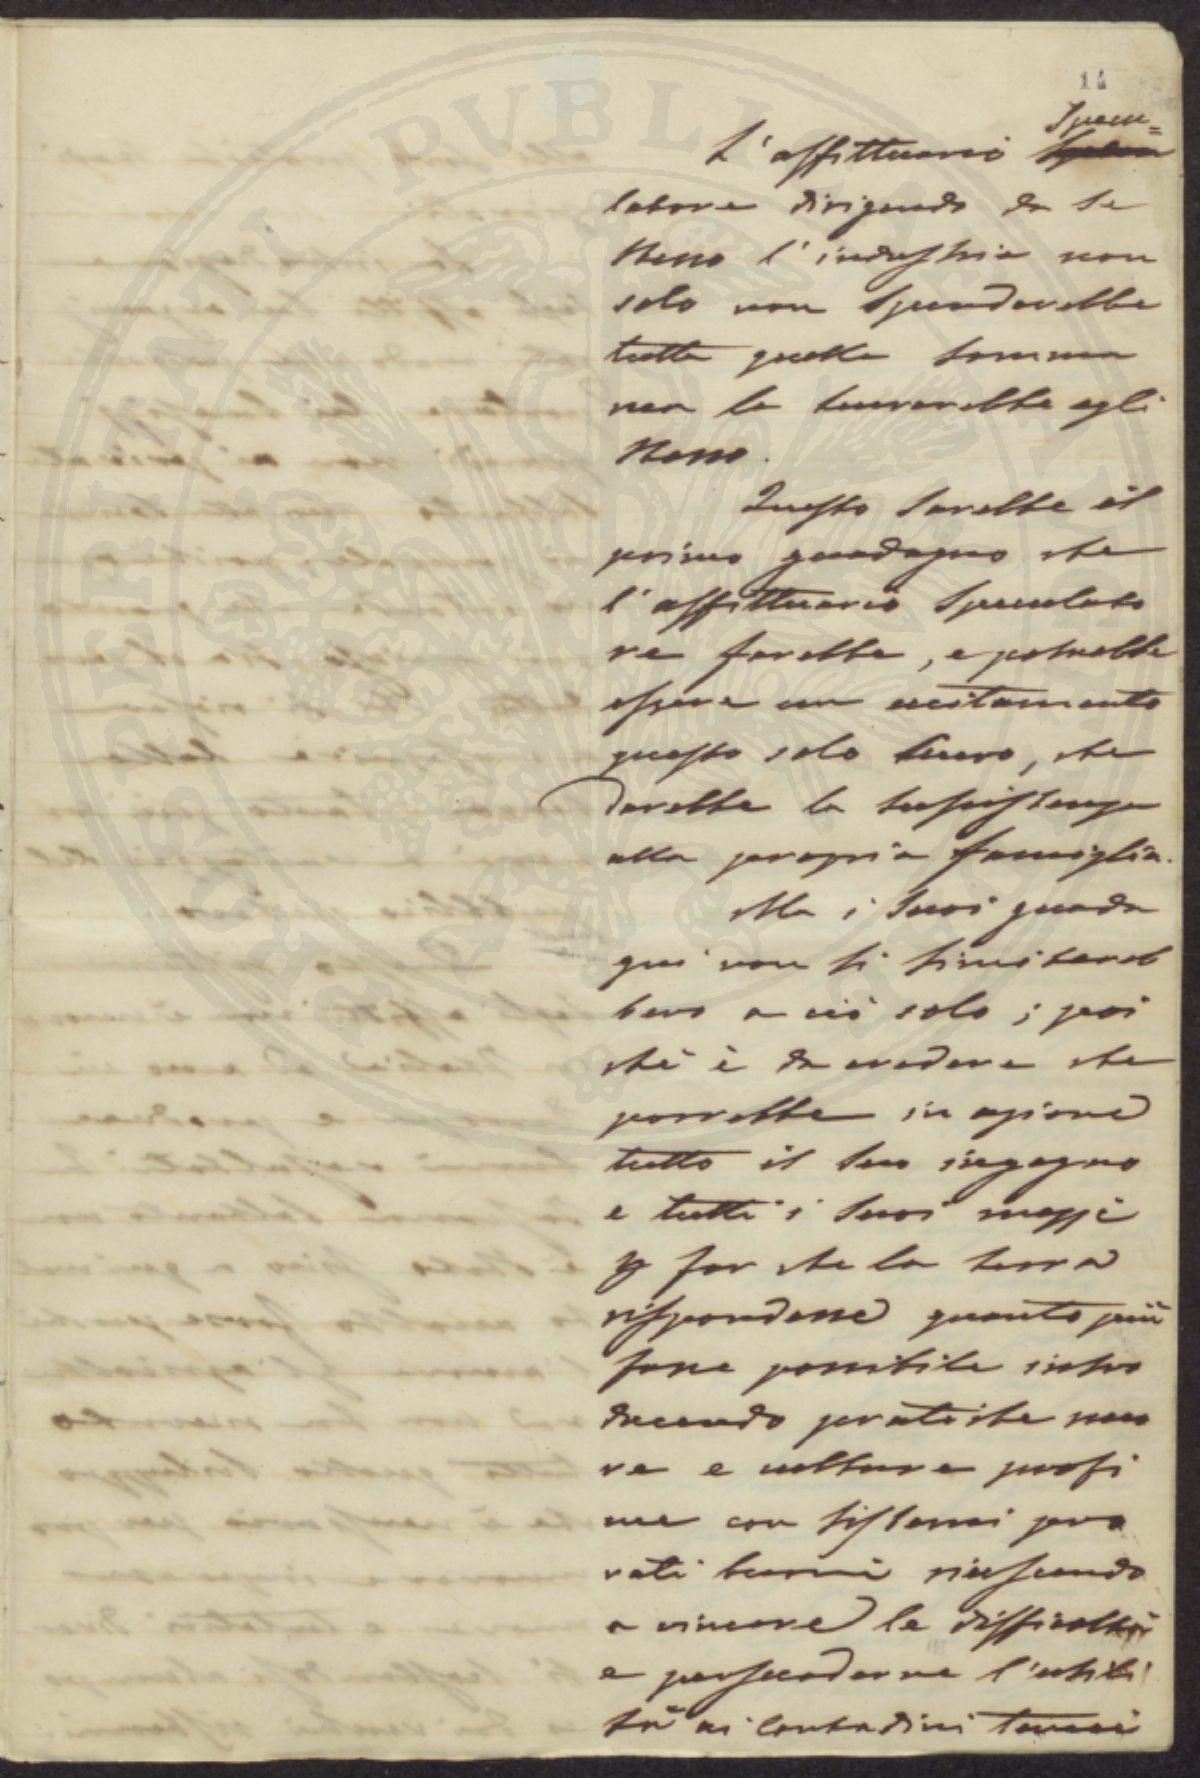 14
L'affittuario Specu=
latore dirigendo da se
stesso l'industria non
solo non spenderebbe
tutta quella somma
ma la lucrerebbe egli
stesso.
Questo sarebbe il
primo guadagno che
l'affittuario Speculato
re farebbe, e potrebbe
essere un eccitamento
questo solo lucro, che
darebbe la sussistenza
alla propria famiglia.
Ma i suoi guada
gni non si limitareb
bero a ciò solo; poi
chè è da credere che
porrebbe in azione
tutto il suo ingegno
e tutti i suoi mezzi
p far che la terra
rispondesse quanto più
fosse possibile intro
ducendo pratiche nuo
ve e culture profi
cue con sistemi pro
vati buoni riuscendo
a vincere le difficoltà
e persuaderne l'utili
tà ai contadini
PROSPERITATI PUBLICAE